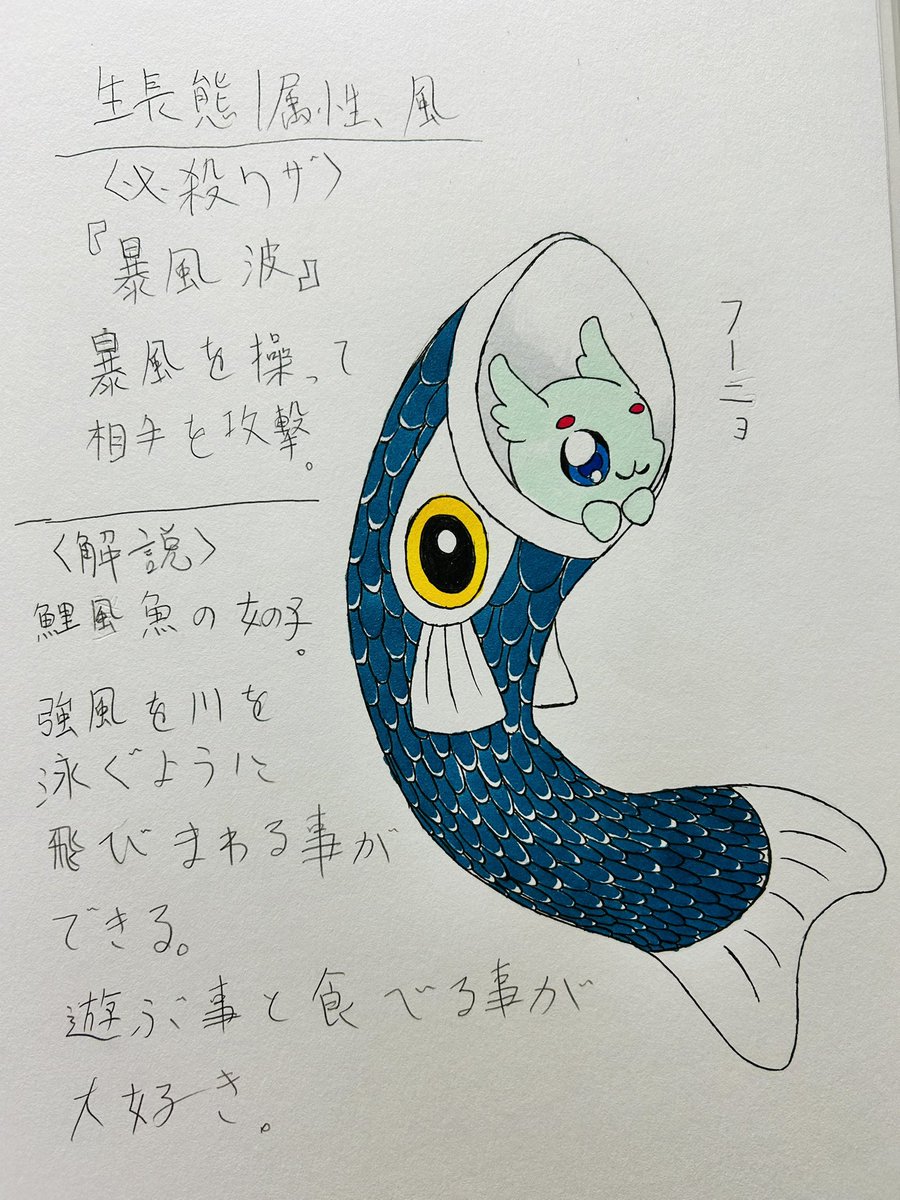 生長態|属性、風
〈必殺ワザ〉
『暴風波』
暴風を操って
相手を攻撃。
〈解説〉
鯉風魚の女の子。
強風を川を
泳ぐように
飛びまわる事が
できる。
遊ぶ事と食べる事が
大好き。
フーニョ